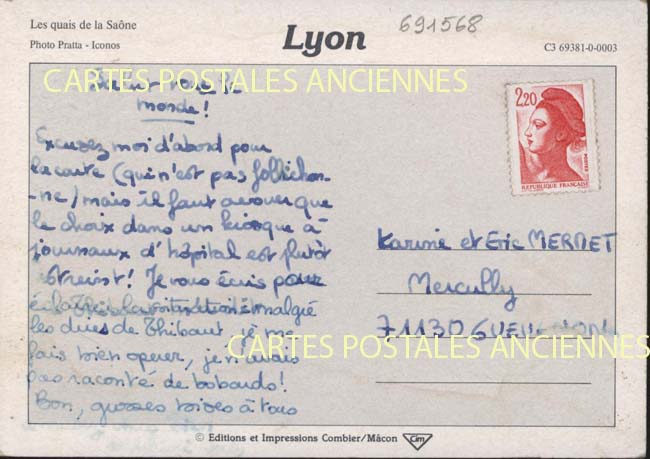 Les quais de la Saône
Photo Pratta - Iconos
Lyon
691568
C3 69381-0-0003
CARTES POSTALES ANCIENNES
monde!
Excusez moi d'abord pour
la carte (qui n'est pas follichon-
-ne) mais il faut avouer que
le choix dans un kiosque à
journaux d'hôpital est plutôt
restreint! Je vous écris pour
la situation malgré
les dires de Thibaut, je me
fais bien opérer, je n'avais
pas raconté de bobards!
Bon, grosses bises à tous
2,20
POSTES
REPUBLIQUE FRANÇAISE
Karine et Eric MERMET
71130
CARTES POSTALES ANCIENNES
© Editions et Impressions Combier/Mâcon
Cim